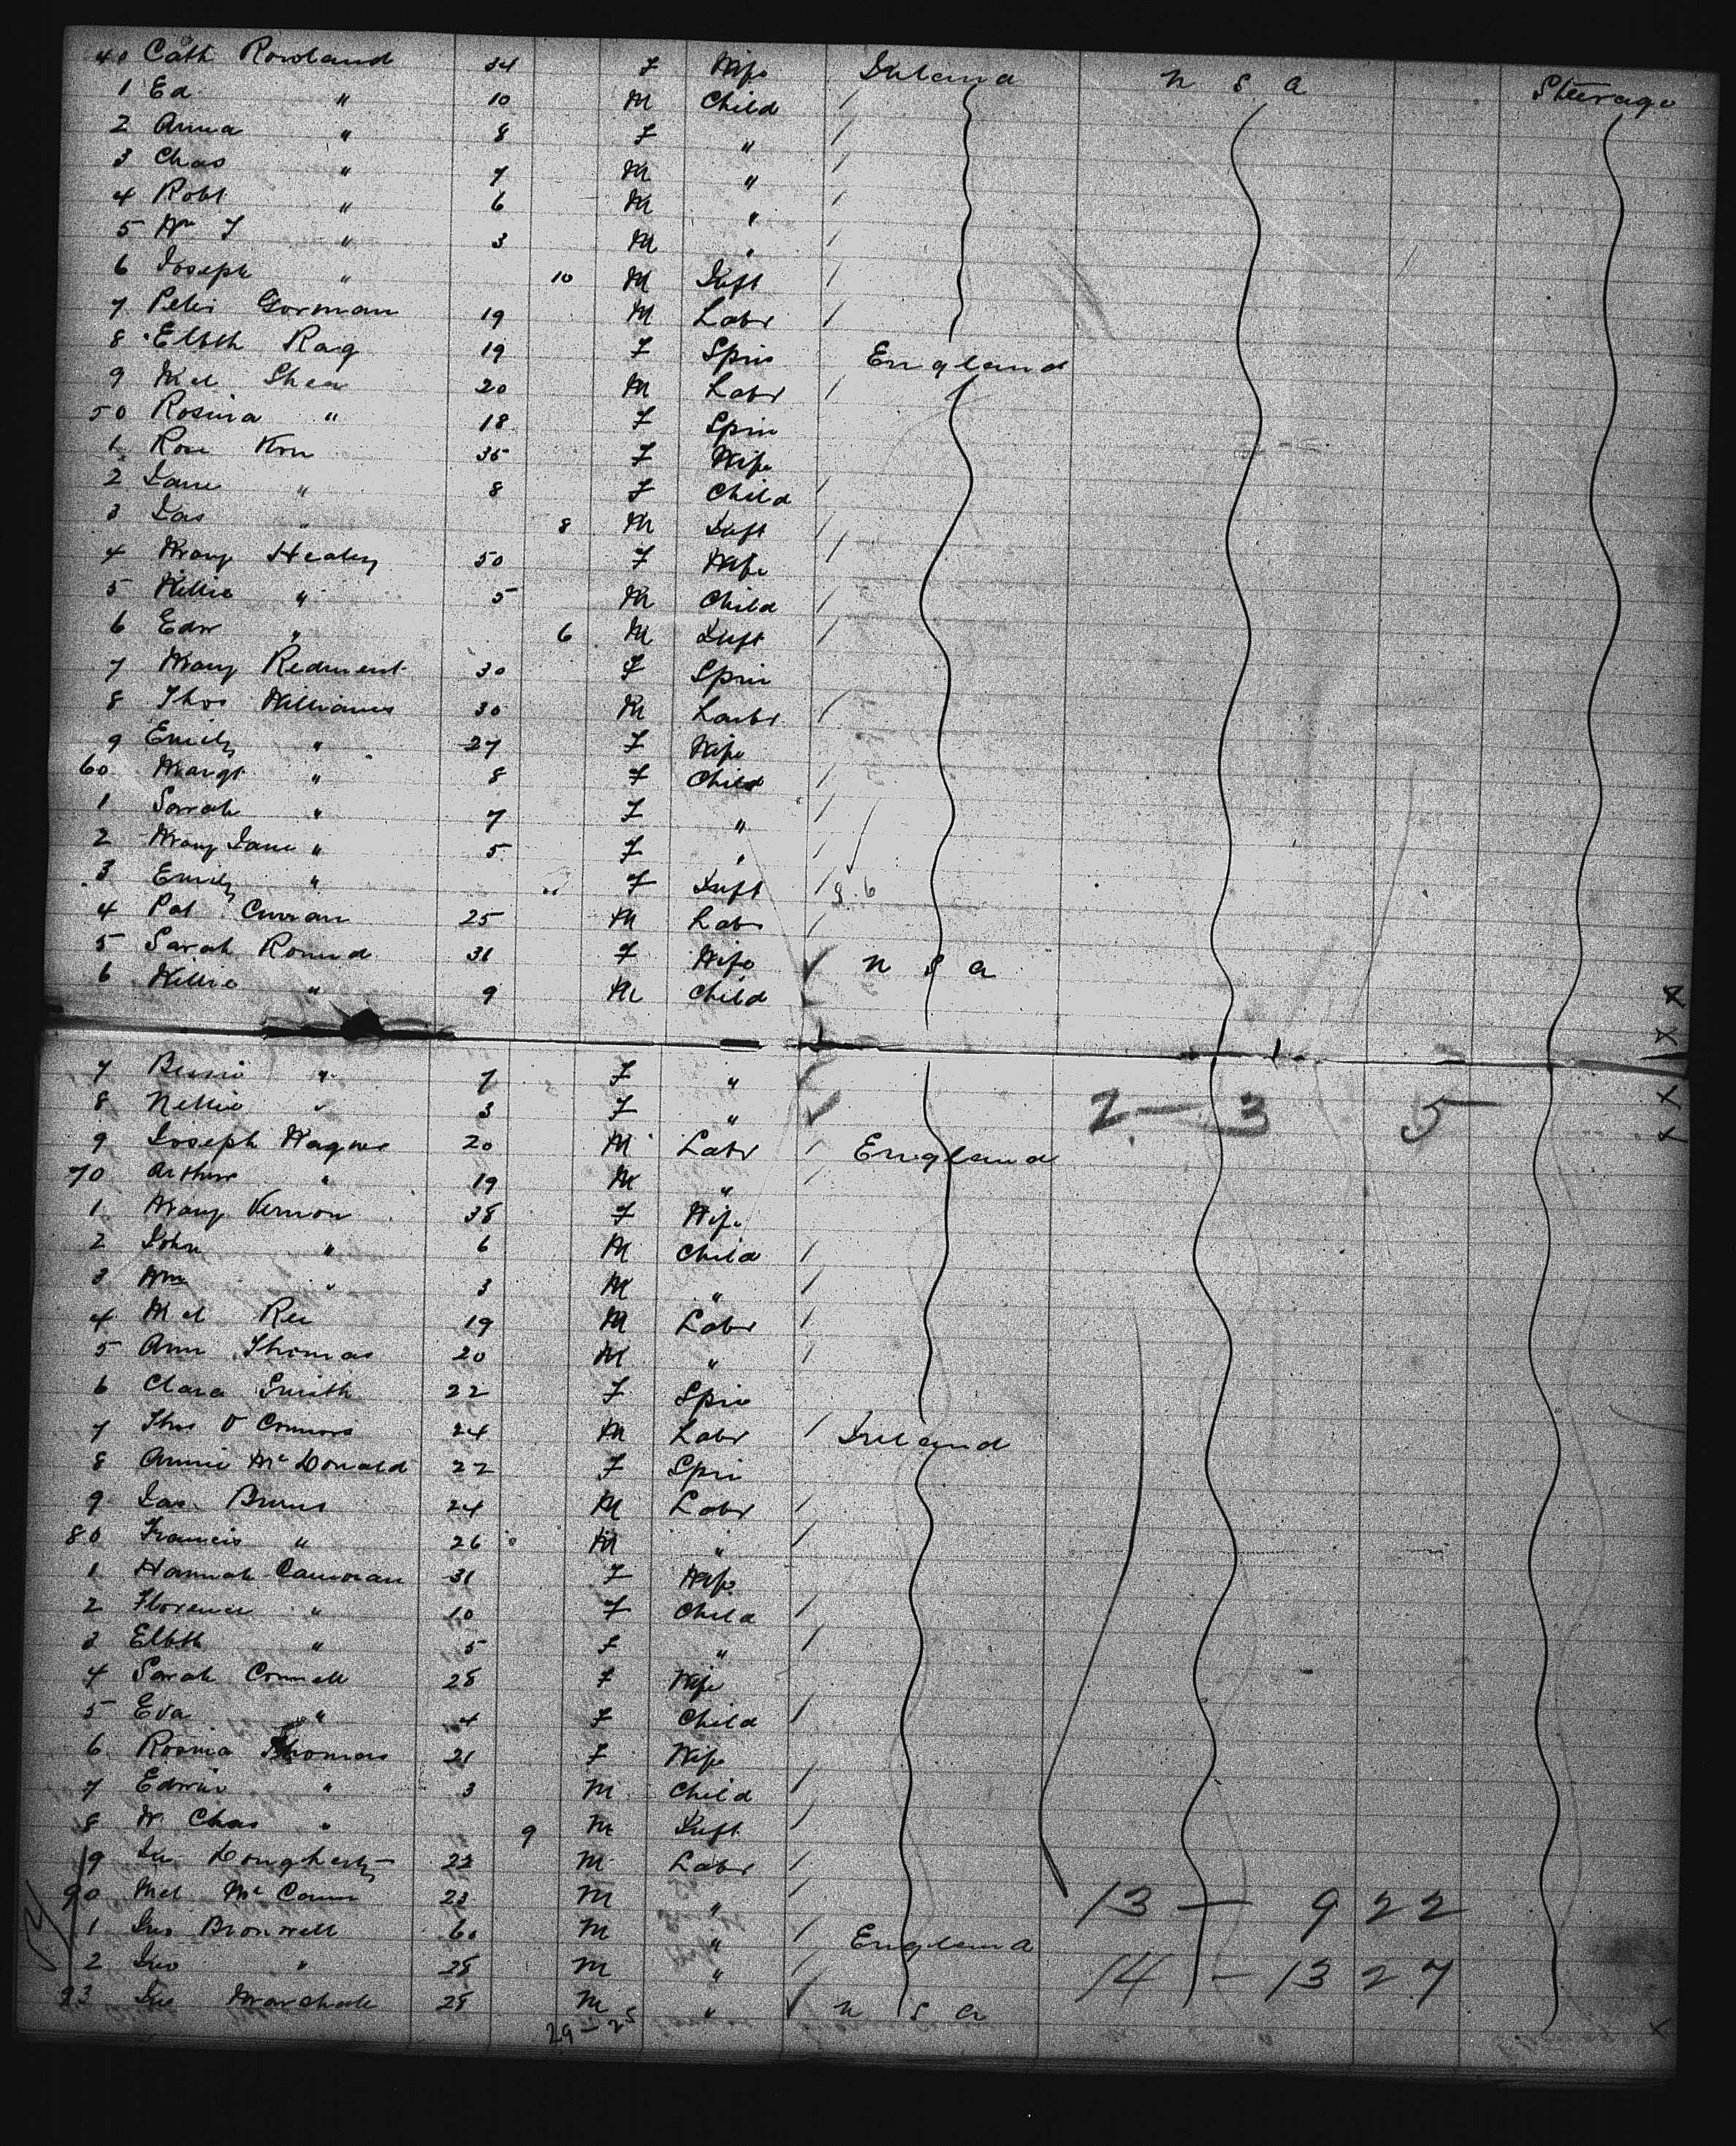 40 Cath Rowland 34 F Wife Ireland U S A Steerage
1 Ed " 10 M Child /
2 Anna " 8 F " /
3 Chas " 7 M " /
4 Robt " 6 M " /
5 Wm J " 3 M " /
6 Joseph " 10 M Inft /
7 Peter Gorman 19 M Labr /
8 Elbth Ray 19 F Spin England
9 Mcl Shea 20 M Labr /
50 Rosina " 18 F Spin
1 Rose 35 F Wife
2 Jane " 8 F Child /
3 Jas " 8 M Inft /
4 Mary Healey 50 F Wife /
5 Willie " 5 M Child /
6 Edw " 6 M Inft /
7 Mary Redment 30 F Spin
8 Thos Williams 30 M Labr /
9 Emily " 27 F Wife
60 Margt " 8 F Child /
1 Sarah " 7 F " /
2 Mary Jane " 5 F " /
3 Emily " F Inft /
4 Pat Curran 25 M Labr /
5 Sarah Round 31 F Wife U S A
6 Willie " 9 M Child
7 Bessie " 7 F "
8 Nellie " 3 F " 2 - 3 5
9 Joseph Wagner 20 M Labr / England
70 Arthur " 19 M " /
1 Mary Vernon 38 F Wife
2 John " 6 M Child /
3 Wm " 3 M " /
4 Mcl Ree 19 M Labr /
5 Ann Thomas 20 M " /
6 Clara Smith 22 F Spin
7 Thos O Connors 24 M Labr / Ireland
8 Annie McDonald 22 F Spin
9 Jas Burns 24 M Labr /
80 Francis " 26 M " /
1 Hannah 31 F Wife
2 Florence " 10 F Child /
3 Elbth " 5 F " /
4 Sarah Connell 28 F Wife
5 Eva " 4 F Child /
6 Rosina Thomas 21 F Wife
7 Edwin " 3 M Child /
8 W. Chas " 9 M Inft /
9 Dougherty 22 M Labr /
90 Mcl McCann 23 M " / 13 - 922
1 Jno Bronwell 60 M " / England
2 Jno " 28 M " / 14 - 1327
93 Marshall 28 M " U S A
29 - 25